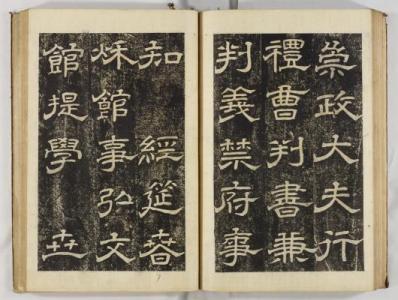 崇政大夫行
禮曹判書兼
判義禁府事
知 經筵春
秋館事弘文
館提學 世